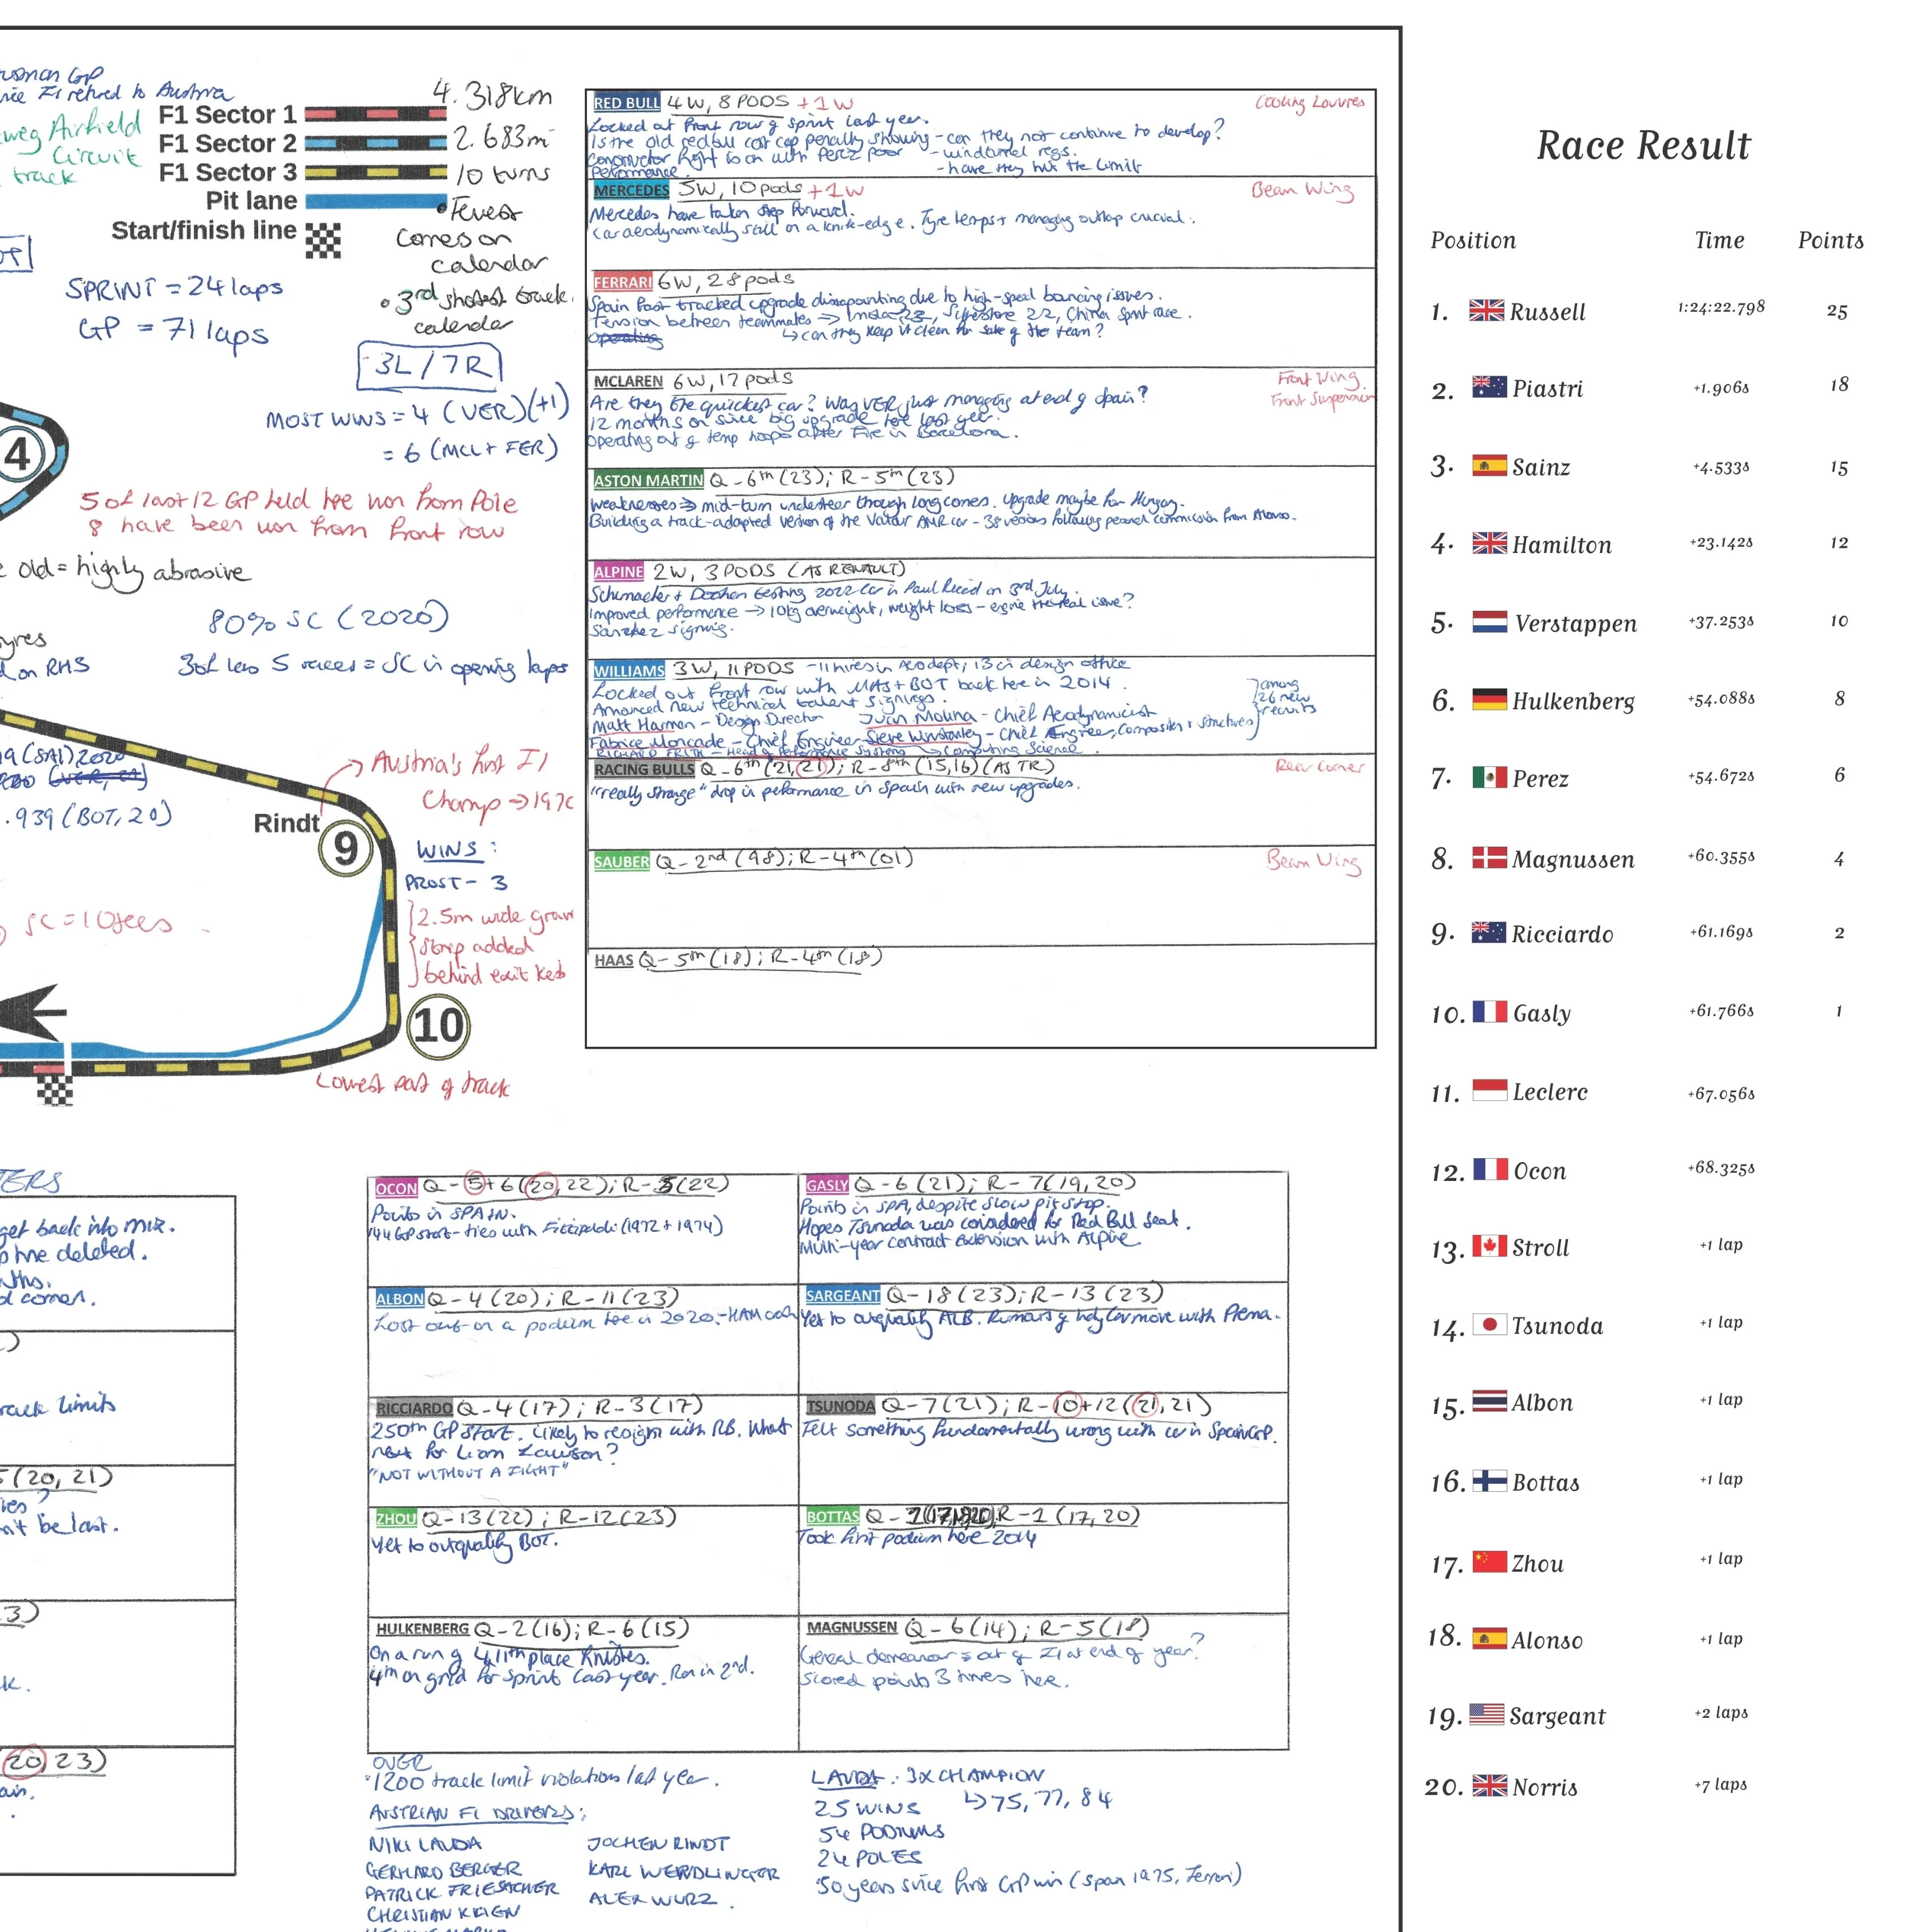 F1 Sector 1
F1 Sector 2
F1 Sector 3
Pit lane
Start/finish line
4.318km
2.683m
10 turns
Circuit
track
Comes on
calendar
3rd shortest track
calendar
SPRINT = 24 laps
GP = 71 laps
3L / 7R
MOST WINS = 4 (VER)(+1)
= 6 (MCL + FER)
4
5 of last 12 GP held here won from Pole
8 have been won from front row
old = highly abrasive
80% SC (2020)
on RHS
= SC in opening laps
.939 (BOT, 20)
Austria's first F1
Champ → 197
Rindt
9
WINS:
PROST - 3
2.5m wide
strip added
behind exit kerb
10
Lowest part of track
RED BULL 4W, 8 PODS +1W
Cooling Louvres
Locked out front row of sprint last year.
Is the old redbull cost cap penalty showing - can they not continue to develop?
- windtunnel regs.
Performance.
- have they hit the limit
MERCEDES 5W, 10 pods +1W
Beam Wing
Mercedes have taken step forward.
Car aerodynamically still on a knife-edge. Tyre temps + managing outlap crucial.
FERRARI 6W, 28 pods
Spain fast tracked upgrade dissapointing due to high-speed bouncing issues.
Tension between teammates ⇒ 22, China sprint race.
↳ can they keep it clean for sake of the team?
MCLAREN 6W, 17 pods
Front Wing.
Front Suspension
Are they the quickest car? Was VER just managing at end of Spain?
12 months on since big upgrade here last year.
Operating out of temp after Fire in Barcelona.
ASTON MARTIN Q - 6th (23); R - 5th (23)
Weaknesses ⇒ mid-turn understeer through long corners. Upgrade maybe for Hungary.
Building a track-adapted version of the Valour AMR car - 38 versions following personal commission from Alonso.
ALPINE 2W, 3 PODS (AS RENAULT)
Schumacher + Doohan testing 2022 car in Paul Ricard on 3rd July.
Improved performance → 10kg overweight, weight loss - engine the real issue?
Sanchez signing.
WILLIAMS 3W, 11 PODS - 11 hires in Aero dept, 13 in design office
Locked out front row with MAS + BOT back here in 2014.
Announced new technical talent signings.
among
26 new
recruits
Matt Harman - Design Director Juan Molina - Chief Aerodynamicist
Fabrice Moncade - Chief Engineer Steve Winstanley - Chief Engineer, Composites + Structures
RICHARD FRITH - Head of Performance Systems ↘ Computing Science
RACING BULLS Q - 6th (21, 21); R - 8th (15,16) (AS TR)
Rear Corner
"really strange" drop in performance in Spain with new upgrades.
SAUBER Q - 2nd (98); R - 4th (01)
Beam Wing
HAAS Q - 5th (18); R - 4th (18)
Race Result
Position Time Points
1. Russell 1:24:22.798 25
2. Piastri +1.906s 18
3. Sainz +4.533s 15
4. Hamilton +23.142s 12
5. Verstappen +37.253s 10
6. Hulkenberg +54.088s 8
7. Perez +54.672s 6
8. Magnussen +60.355s 4
9. Ricciardo +61.169s 2
10. Gasly +61.766s 1
11. Leclerc +67.056s
12. Ocon +68.325s
13. Stroll +1 lap
14. Tsunoda +1 lap
15. Albon +1 lap
16. Bottas +1 lap
17. Zhou +1 lap
18. Alonso +1 lap
19. Sargeant +2 laps
20. Norris +7 laps
get back into mix.
deleted.
track limits
(20, 21)
be last.
20, 23)
OCON Q - 5+6 (20, 22); R - 5 (22)
Points in SPAIN.
144 GP start - ties with Fittipaldi (1972 + 1974)
GASLY Q - 6 (21); R - 7 (19, 20)
Points in SPA, despite slow pit stop.
Hopes Tsunoda was considered for Red Bull seat.
Multi-year contract extension with Alpine.
ALBON Q - 4 (20); R - 11 (23)
Lost out on a podium here in 2020 - HAM
SARGEANT Q - 18 (23); R - 13 (23)
Yet to outqualify ALB. Rumors of move with Prema.
RICCIARDO Q - 4 (17); R - 3 (17)
250th GP start. Likely to resign with RB. What
next for Liam Lawson?
"NOT WITHOUT A FIGHT"
TSUNODA Q - 7 (21); R - 10+12 (21, 21)
Felt something fundamentally wrong with car in Spain GP.
ZHOU Q - 13 (22); R - 12 (23)
Yet to outqualify BOT.
BOTTAS Q - R - 1 (17, 20)
Took first podium here 2014
HULKENBERG Q - 2 (16); R - 6 (15)
On a run of 4 11th place finishes.
4th on grid for sprint last year. Ran in 2nd.
MAGNUSSEN Q - 6 (14); R - 5 (18)
General demeanor = out of F1 at end of year?
Scored points 3 times here.
OVER
1200 track limit violations last year.
AUSTRIAN F1 DRIVERS:
NIKI LAUDA JOCHEN RINDT
GERHARD BERGER KARL WENDLINGER
PATRICK FRIESACHER ALEX WURZ
CHRISTIAN KLIEN
LAUDA: 3X CHAMPION
25 WINS ↳ 75, 77, 84
54 PODIUMS
24 POLES
50 years since first GP win (Spain 1975, Ferrari)